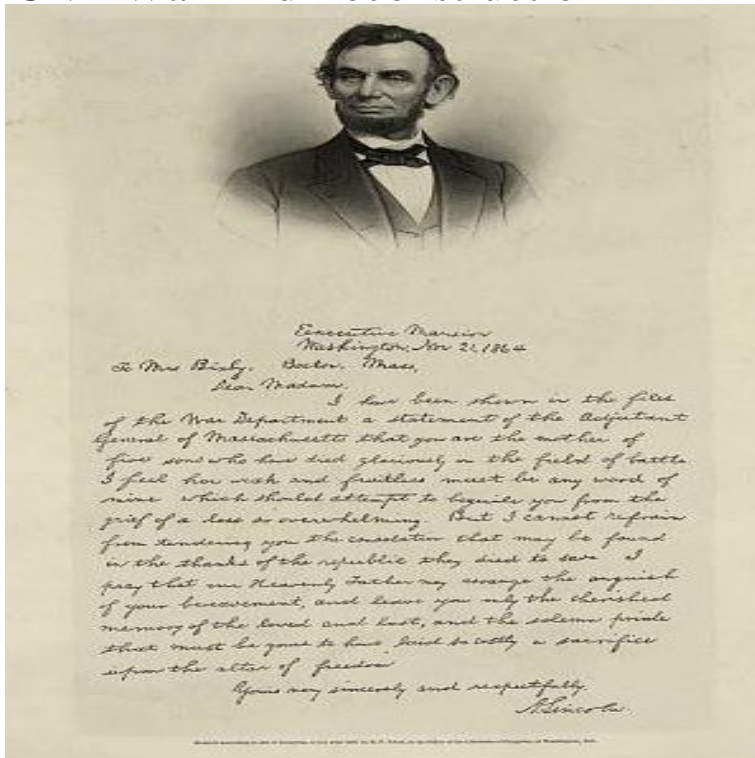 Executive Mansion
Washington, Nov 21, 1864
To Mrs Bixby, Boston. Mass,
Dear Madam.
I have been shown in the files
of the War Department a statement of the Adjutant
General of Massachusetts that you are the mother of
five sons who have died gloriously on the field of battle
I feel how weak and fruitless must be any word of
mine which should attempt to beguile you from the
grief of a loss so overwhelming. But I cannot refrain
from tendering you the consolation that may be found
in the thanks of the republic they died to save I
pray that our Heavenly Father may assuage the anguish
of your bereavement, and leave you only the cherished
memory of the loved and lost, and the solemn pride
that must be yours to have laid so costly a sacrifice
upon the altar of freedom
Yours very sincerely and respectfully.
A. Lincoln.